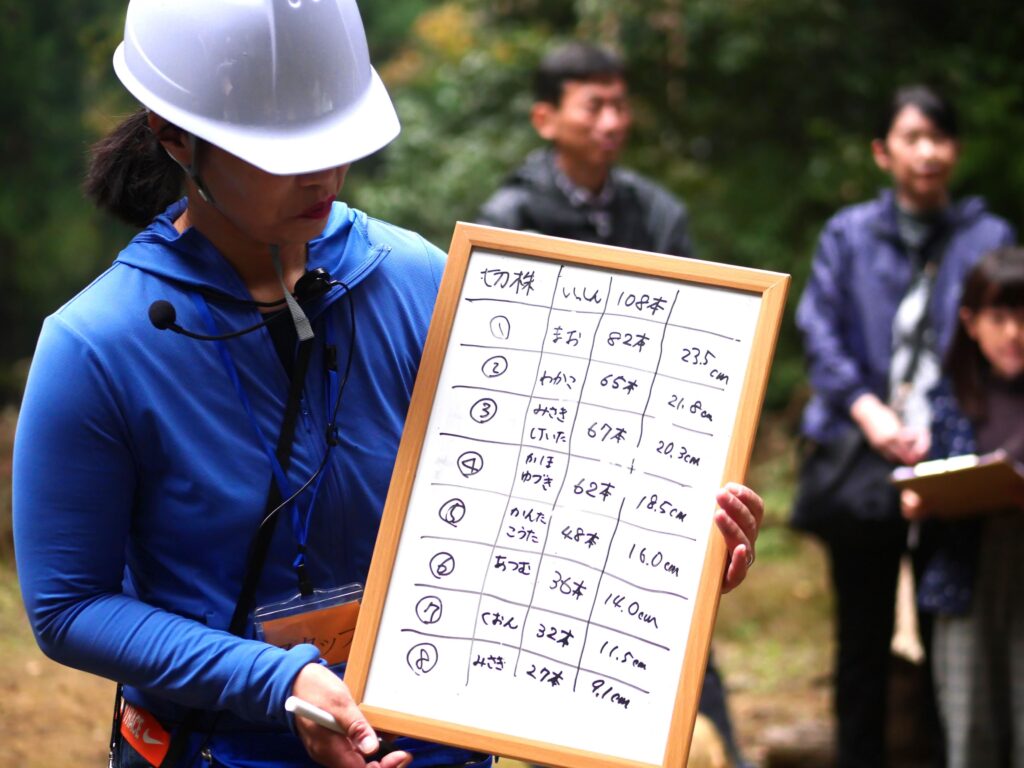 切株 いっしん 108本
① まお 82本 23.5cm
② わかこ 65本 21.8cm
③ みさき 67本 20.3cm
けいた
④ かほ 62本 18.5cm
ゆづき
⑤ かんた 48本 16.0cm
こうた
⑥ あつむ 36本 14.0cm
⑦ くおん 32本 11.5cm
⑧ みさき 27本 9.1cm